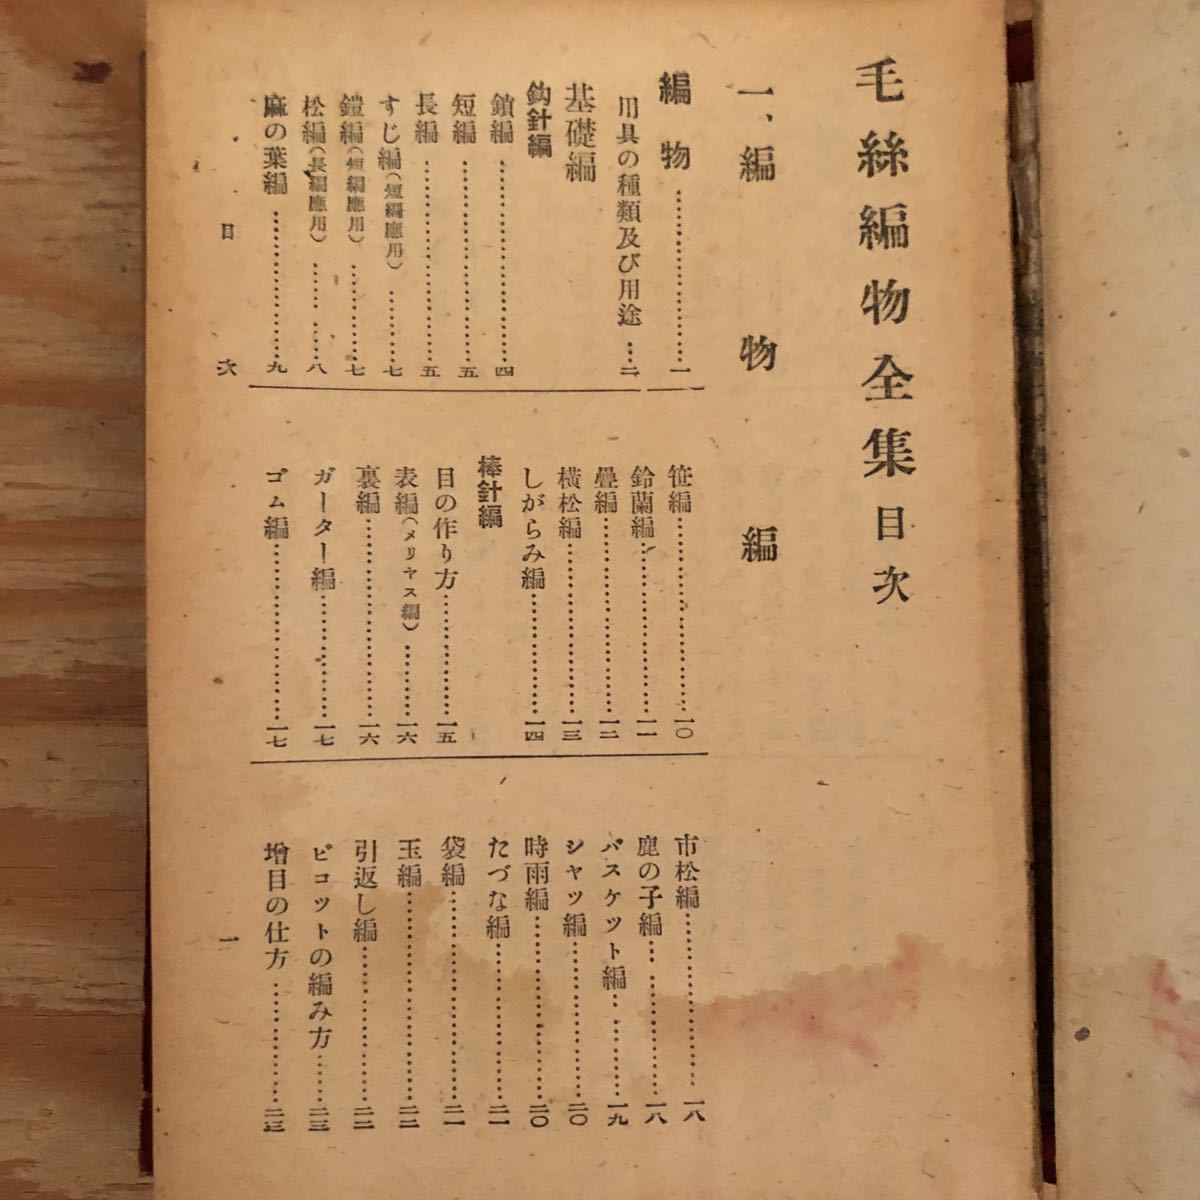 毛絲編物全集目次
一、編物編
編物……………一
用具の種類及び用途…二
基礎編
鈎針編
鎖編……………四
短編……………五
長編……………五
すじ編(短編應用)……七
鎧編(短編應用)……七
松編(長編應用)……八
麻の葉編……………九
笹編……………一〇
鈴蘭編……………一一
疊編……………一二
橫松編……………一三
しがらみ編……………一四
棒針編
目の作り方……………一五
表編(メリヤス編)……一六
裏編……………一六
ガーター編……………一七
ゴム編……………一七
市松編……………一八
鹿の子編……………一八
バスケツト編……………一九
シャツ編……………二〇
時雨編……………二〇
たづな編……………二一
袋編……………二一
玉編……………二二
引返し編……………二二
ピコツトの編み方……二三
增目の仕方……………二三
目次
一